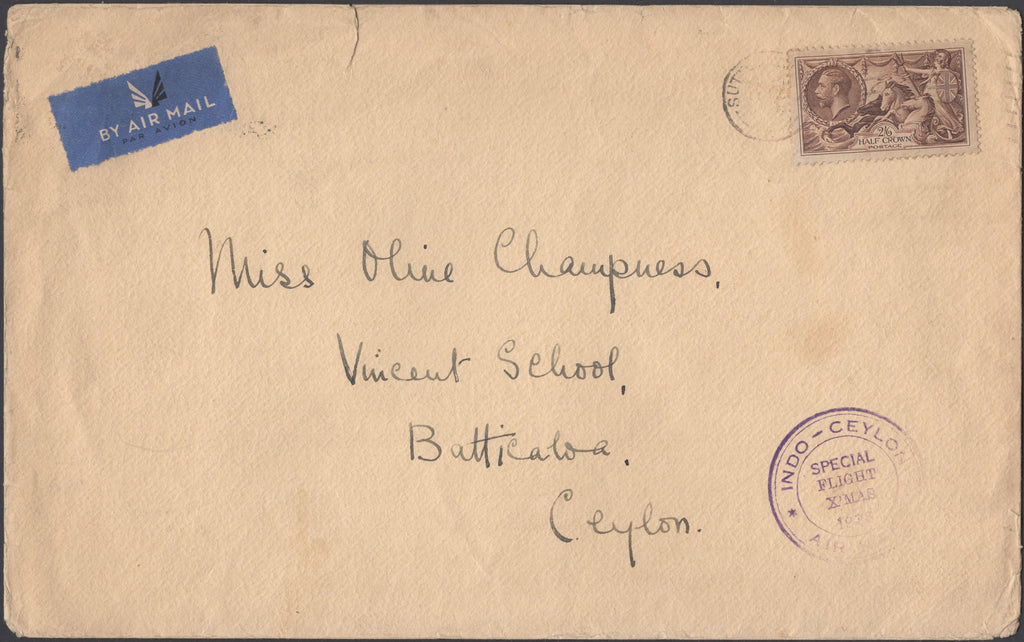 BY AIR MAIL
PAR AVION
SUT
2/6
HALF CROWN
POSTAGE
Miss Olive Champness,
Vincent School,
Batticaloa,
Ceylon.
INDO - CEYLON
SPECIAL
FLIGHT
X'MAS
AIR